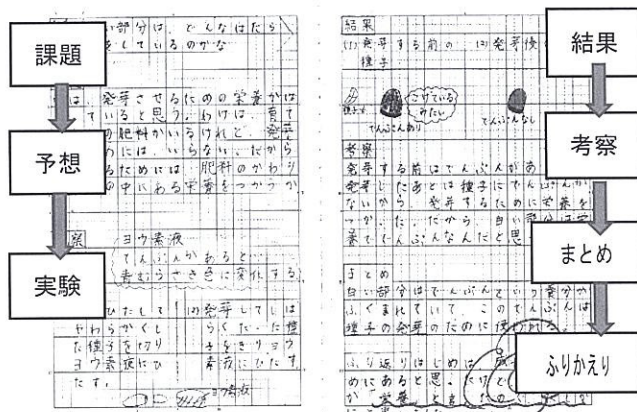 課題
い部分は、どんなはたら
をしているのかな
は、発芽させるための栄養がは
ていると思う。わけは、育て
の肥料がいるけれど、発芽
には、いらない。だから
るためには肥料のかわり
の中にある栄養をつかうか
予想
ヨウ素液
でんぷんがあると…
青むらさき色に変化する
実験
ひたして
やわらかくし
た種子を切り
ヨウ素液にひ
たす。
(2)発芽してしば
らくたった種
子をきりヨウ
素液にひたす。
ヨウ素液
結果
結果
(1)発芽する前の
種子
(2)発芽後
こげている
みたい
でんぷんあり
でんぷんなし
考察
考察
発芽する前はでんぷんがあ
発芽したあとは種子にでんぷんが
ないから、発芽するために栄養を
つかった。だから、白い部分は栄
養ででんぷんなんだと思
まとめ
まとめ
白い部分はでんぷんという養分が
ふくまれていて、このでんぷんは
種子の発芽のために使われる。
ふりかえり
ふり返りはじめは
めにあると思ったけど
か
栄養